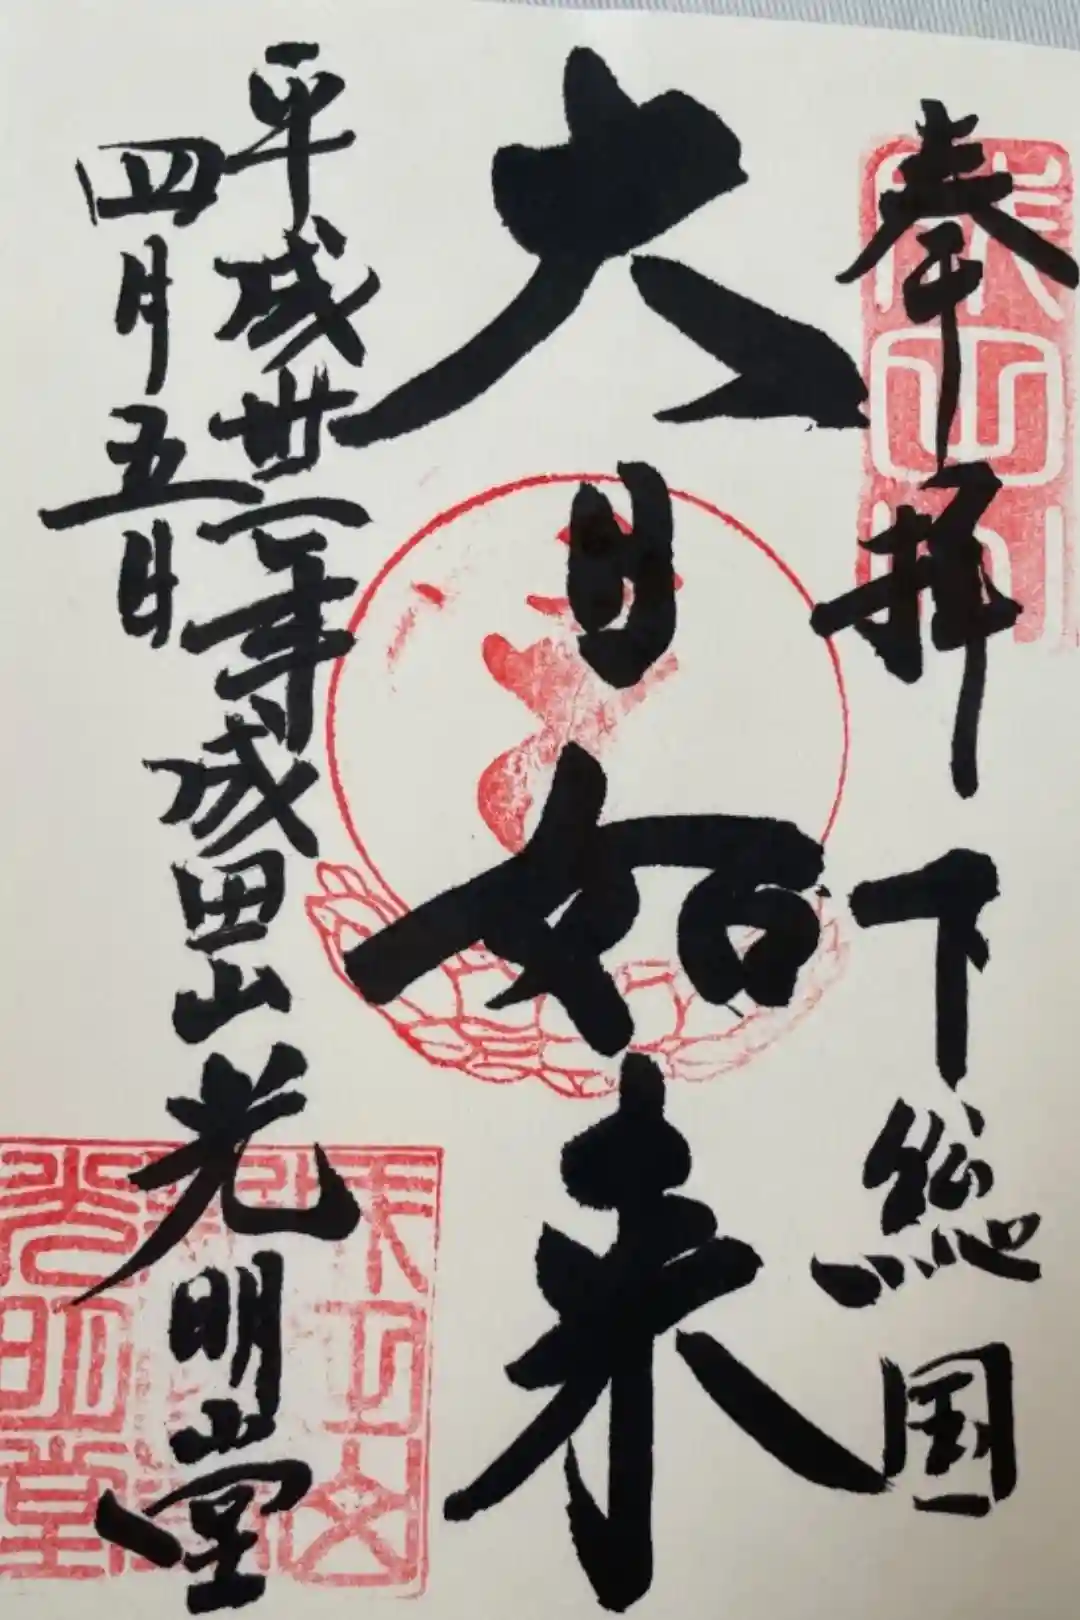 奉拝 下総国
大日如来
平成卅一年成田山光明堂
四月五日
光明堂